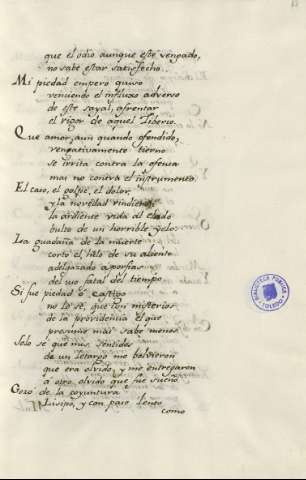 que el odio aunque esté vengado,
no sabe estar satisfecho.
Mi piedad empero quiso
venciendo el influxo adverso
de este sayal, afrentar
el rigor de aquel Tiberio.
Que amor, aun quando ofendido,
vengativamente tierno
se irrita contra la ofensa
mas no contra el instrumento.
El caso, el golpe, el dolor,
y la novedad rindieron
la ardiente vida al elado
bulto de un horrible yelo.
La guadaña de la muerte
cortó el hilo de su aliento
adelgazado a porfias
del uso fatal del tiempo.
Si fue piedad o castigo
no lo se, que son misterios
de la providencia el que
presume mas sabe menos.
Solo se que mis sentidos
de un letargo me bolvieron
que era olvido, y me entregaron
a otro olvido que fue sueño.
Gozó de la coyuntura
Lusipo, y con paso lento
como
BIBLIOTECA PUBLICA
TOLEDO